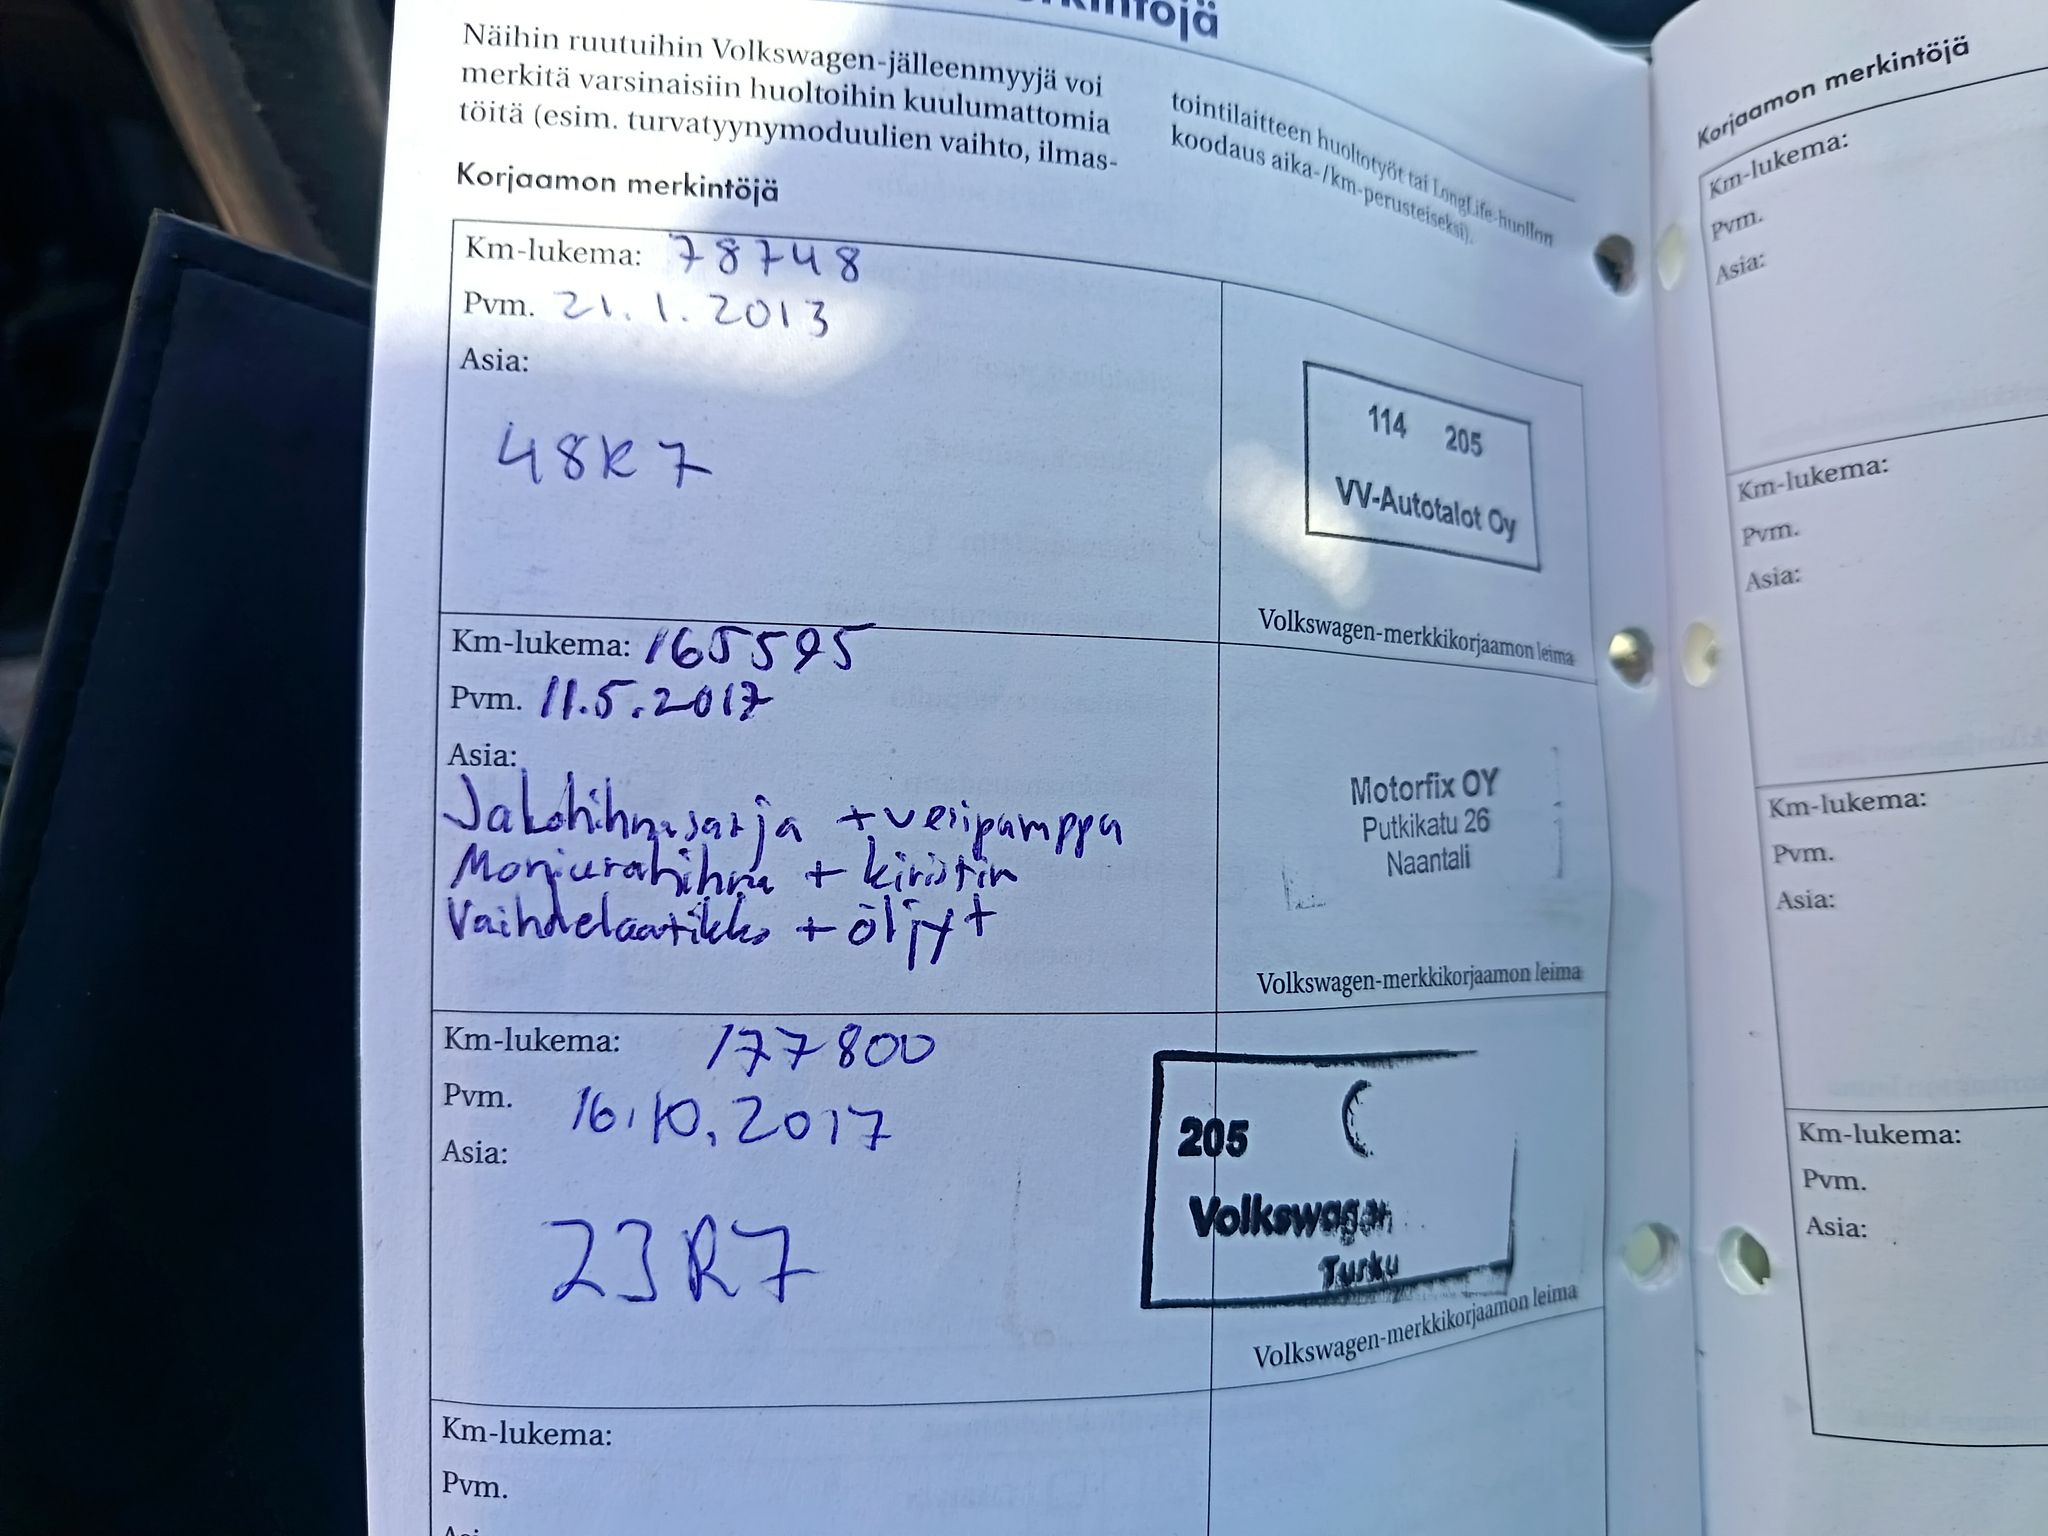 merkintöjä
Näihin ruutuihin Volkswagen-jälleenmyyjä voi
merkitä varsinaisiin huoltoihin kuulumattomia
töitä (esim. turvatyynymoduulien vaihto, ilmas-
tointilaitteen huoltotyöt tai LongLife-huollon
koodaus aika-/km-perusteiseksi).
Korjaamon merkintöjä
Km-lukema: 78748
Pvm. 21.1.2013
Asia:
48K7
114 205
VV-Autotalot Oy
Volkswagen-merkkikorjaamon leima
Km-lukema: 165595
Pvm. 11.5.2017
Asia:
Jakohihnasarja + vesipumppu
Moniurahihna + kiristin
Vaihdelaatikko + öljyt
Motorfix OY
Putkikatu 26
Naantali
Volkswagen-merkkikorjaamon leima
Km-lukema: 177800
Pvm. 16.10.2017
Asia:
23R7
205
Volkswagen
Turku
Volkswagen-merkkikorjaamon leima
Km-lukema:
Pvm.
Korjaamon merkintöjä
Km-lukema:
Pvm.
Asia:
Km-lukema:
Pvm.
Asia:
Km-lukema:
Pvm.
Asia:
Km-lukema:
Pvm.
Asia: